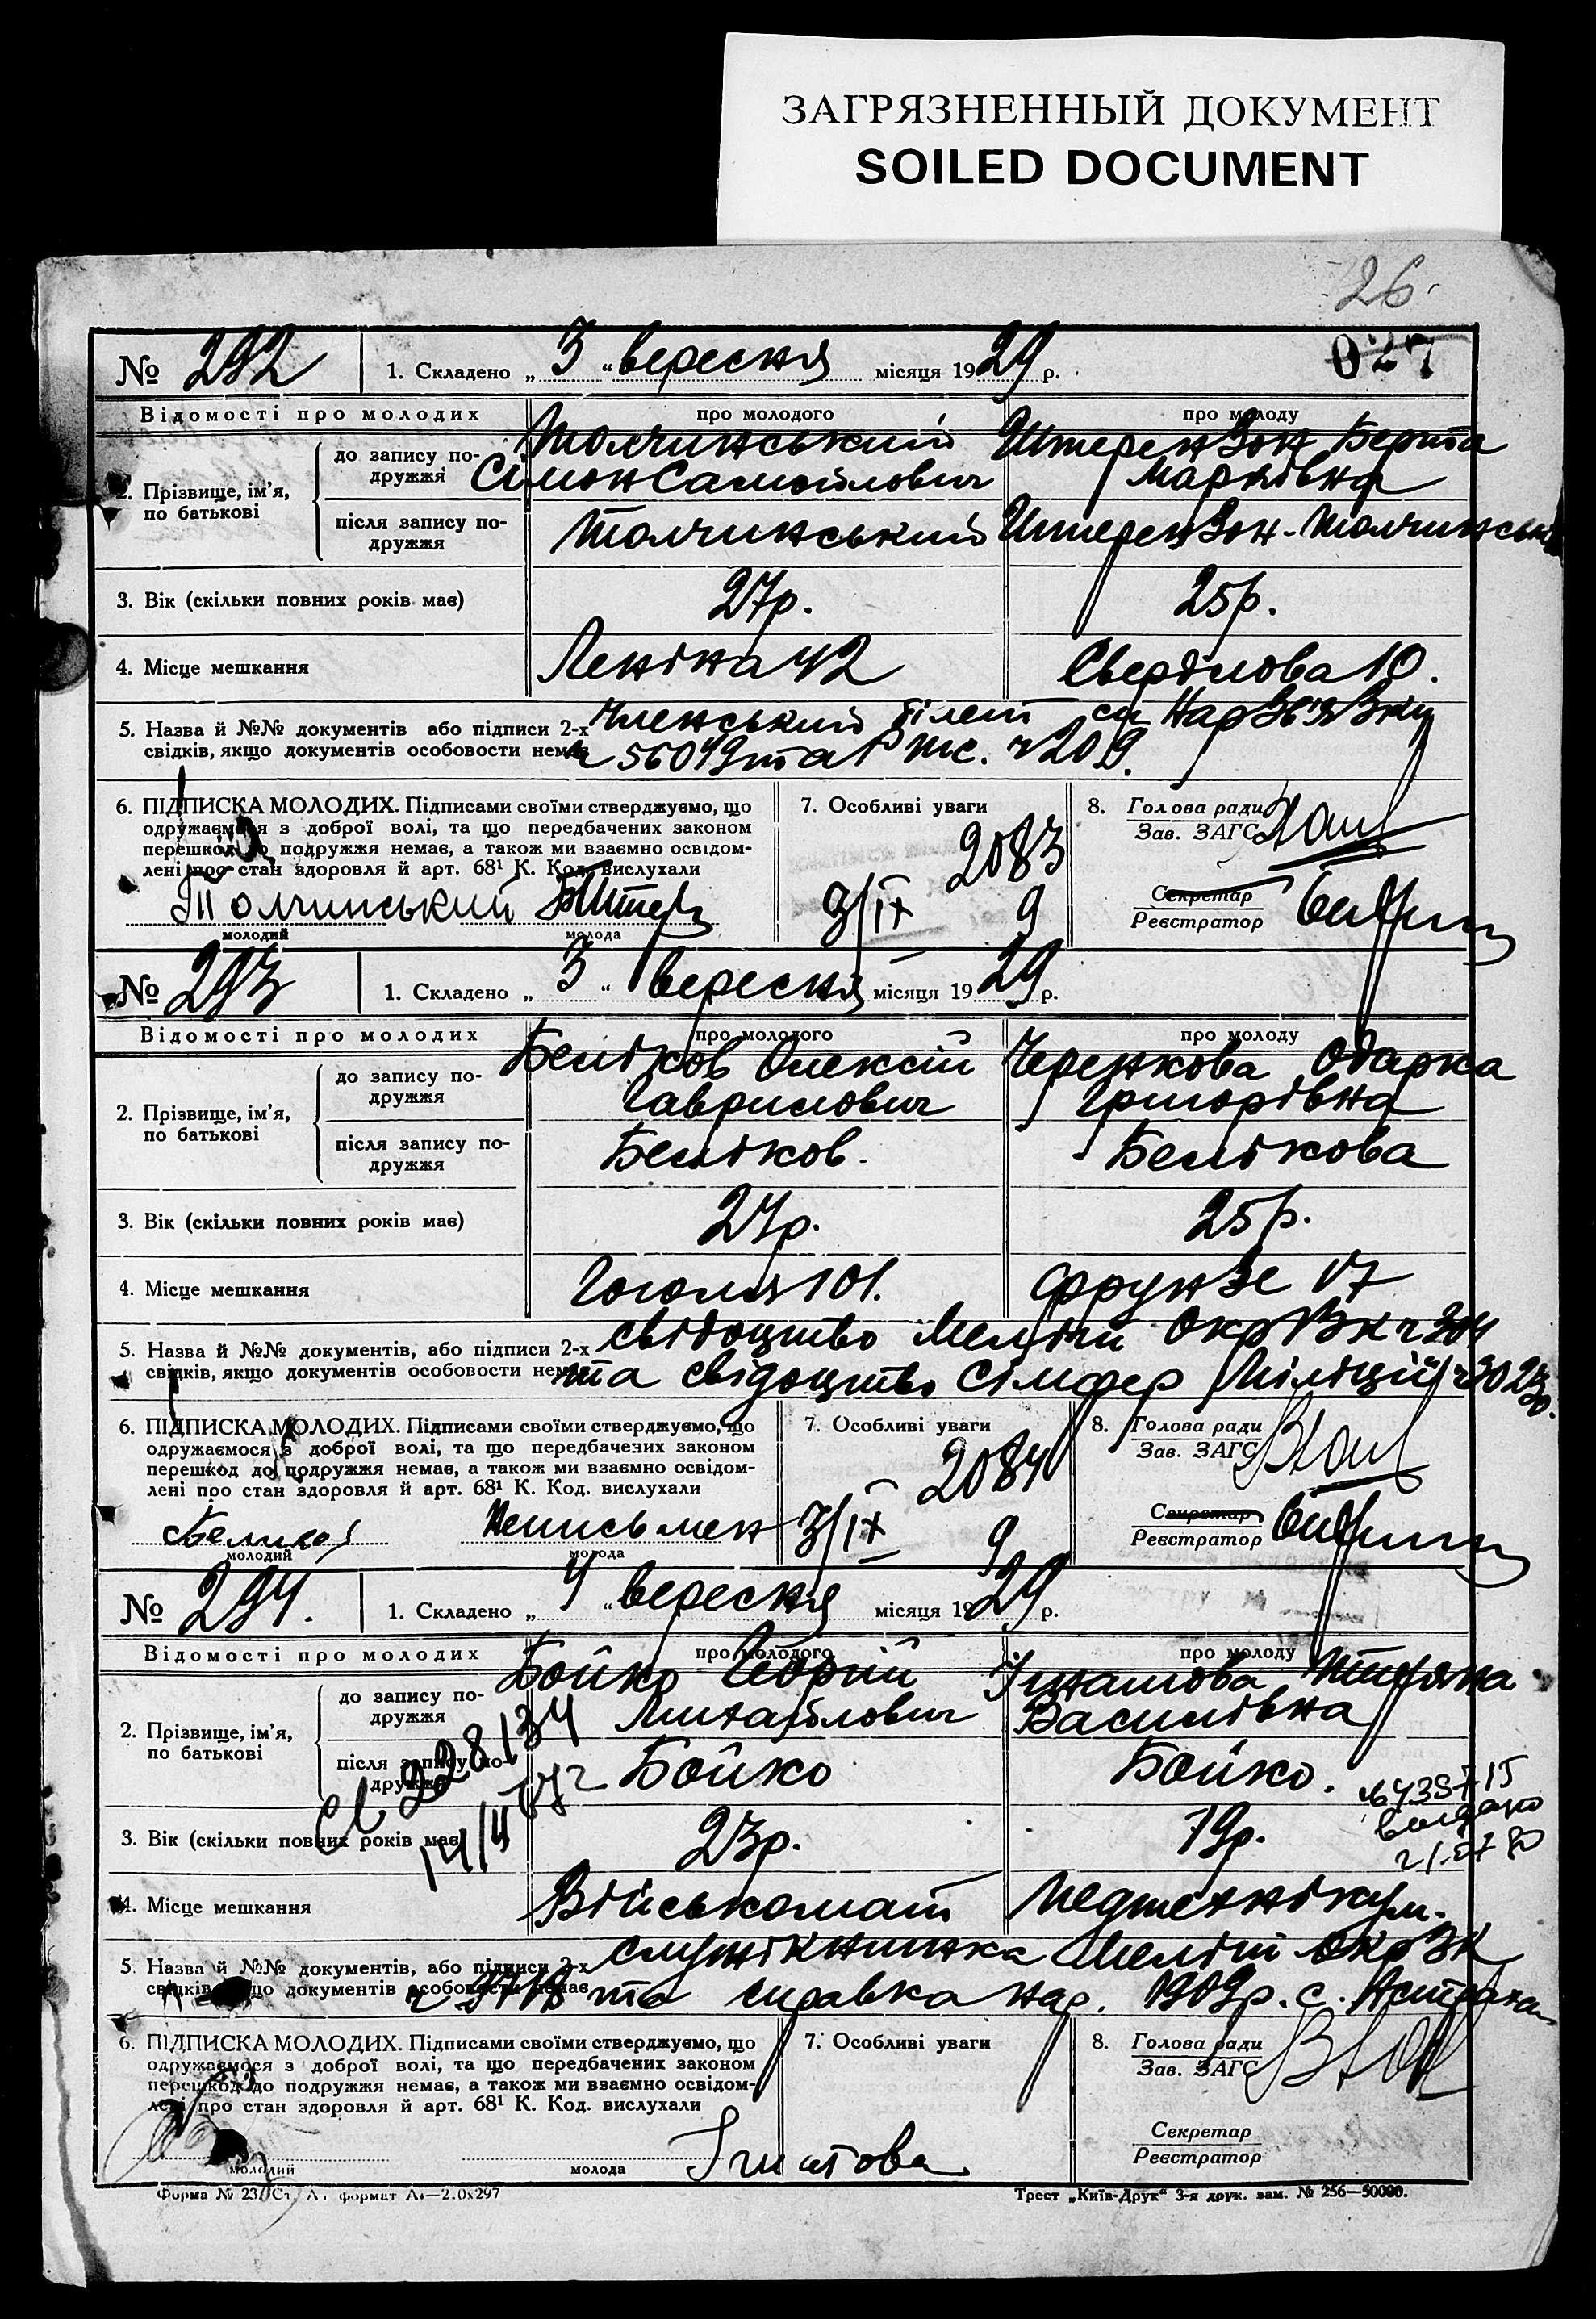 ЗАГРЯЗНЕННЫЙ ДОКУМЕНТ
SOILED DOCUMENT
26.
027
№ 292
1. Складено „ 3 “ вересня місяця 1929 р.
Відомості про молодих про молодого про молоду
2. Прізвище, ім’я, по батькові
до запису подружжя
Толчинський Сімон Самойлович
Штерензон Берта Марківна
після запису подружжя
Толчинський
Штерензон-Толчинськ
3. Вік (скільки повних років має) 27р. 25р.
4. Місце мешкання Леніна 42 Свердлова 10.
5. Назва й №№ документів або підписи 2-х членський білет сп. Нарзв'язку
свідків, якщо документів особовости немає ч 56049 та ч 209.
6. ПІДПИСКА МОЛОДИХ. Підписами своїми стверджуємо, що
одружаємося з доброї волі, та що передбачених законом
перешкод до подружжя немає, а також ми взаємно освідом-
лені про стан здоровля й арт. 68¹ К. Код. вислухали
Толчинський
молодий молода
7. Особливі уваги
2083
3/IX 9
8. Голова ради
Зав. ЗАГС
Секретар
Реєстратор
№ 293
1. Складено „ 3 “ вересня місяця 1929 р.
Відомості про молодих про молодого про молоду
2. Прізвище, ім’я, по батькові
до запису подружжя
Беліков Олексій Гаврилович
Черенкова Одарка Григорівна
після запису подружжя
Беліков.
Белікова
3. Вік (скільки повних років має) 27р. 25р.
4. Місце мешкання Гоголя 101. Фрунзе 17
5. Назва й №№ документів, або підписи 2-х свідоцтво Меліт ОкрВК ч 304
свідків, якщо документів особовости немає та свідоцтво Сімфер Міліції ч 3023
6. ПІДПИСКА МОЛОДИХ. Підписами своїми стверджуємо, що
одружаємося з доброї волі, та що передбачених законом
перешкод до подружжя немає, а також ми взаємно освідом-
лені про стан здоровля й арт. 68¹ К. Код. вислухали
Неписьмен
молодий молода
7. Особливі уваги
2084
3/IX 9
8. Голова ради
Зав. ЗАГС
Секретар
Реєстратор
№ 294.
1. Складено „ 4 “ вересня місяця 1929 р.
Відомості про молодих про молодого про молоду
2. Прізвище, ім’я, по батькові
до запису подружжя
Бойко Георгій Михайлович
Ігнатова Тетяна Василівна
після запису подружжя
Бойко
Бойко.
3. Вік (скільки повних років має) 23р. 19р.
4. Місце мешкання Медтехнікум.
5. Назва й №№ документів, або підписи 2-х служкнижка Меліт ОкрВК
свідків, якщо документів особовости немає та справка нар. 1909р. с.
6. ПІДПИСКА МОЛОДИХ. Підписами своїми стверджуємо, що
одружаємося з доброї волі, та що передбачених законом
перешкод до подружжя немає, а також ми взаємно освідом-
лені про стан здоровля й арт. 68¹ К. Код. вислухали
Ігнатова
молодий молода
7. Особливі уваги
8. Голова ради
Зав. ЗАГС
Секретар
Реєстратор
Трест „Київ-Друк“ 3-я друк. зам. № 256—50000.